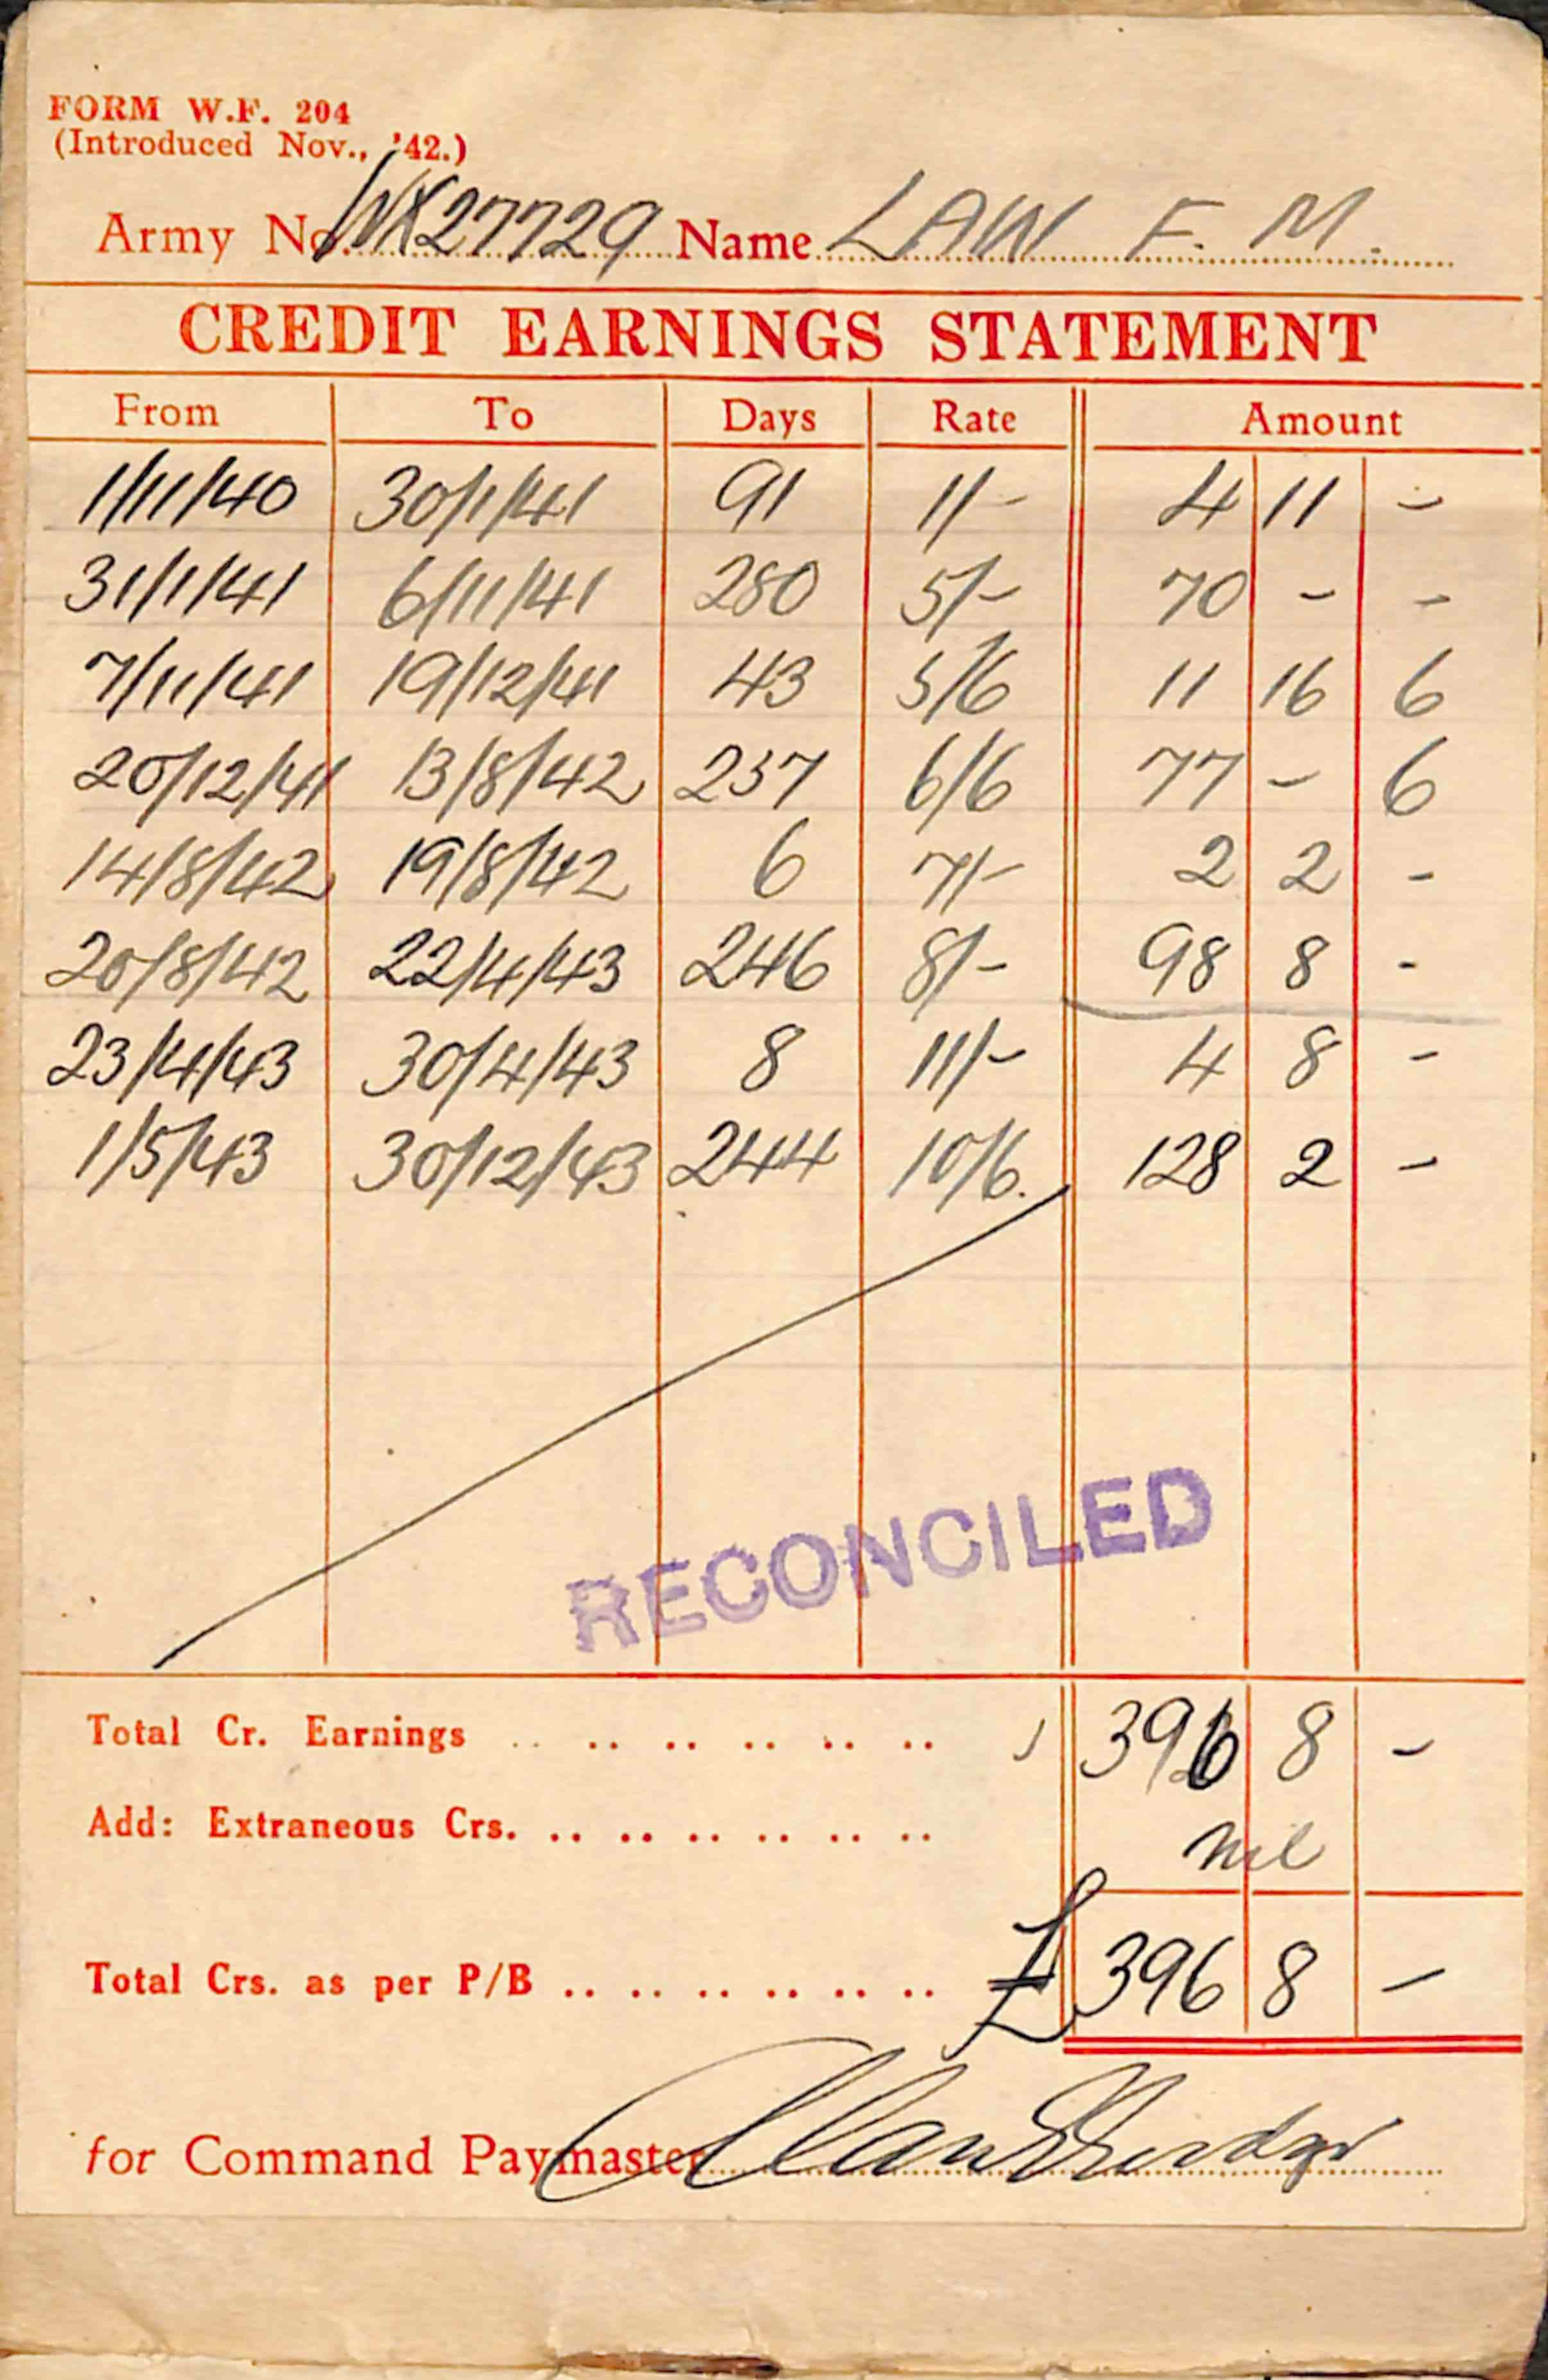 FORM W.F. 204
(Introduced Nov., '42.)
Army No. WX27729 Name LAW F. M.
CREDIT EARNINGS STATEMENT
From To Days Rate Amount
1/11/40 30/1/41 91 1/- 4 11 -
31/1/41 6/11/41 280 5/- 70 - -
7/11/41 19/12/41 43 5/6 11 16 6
20/12/41 13/8/42 237 6/6 77 - 6
14/8/42 19/8/42 6 7/- 2 2 -
20/8/42 22/4/43 246 8/- 98 8 -
23/4/43 30/4/43 8 11/- 4 8 -
1/5/43 30/12/43 244 10/6. 128 2 -
RECONCILED
Total Cr. Earnings .. .. .. .. .. .. 396 8 -
Add: Extraneous Crs. .. .. .. .. .. .. nil
Total Crs. as per P/B .. .. .. .. .. .. £ 396 8 -
for Command Paymaster